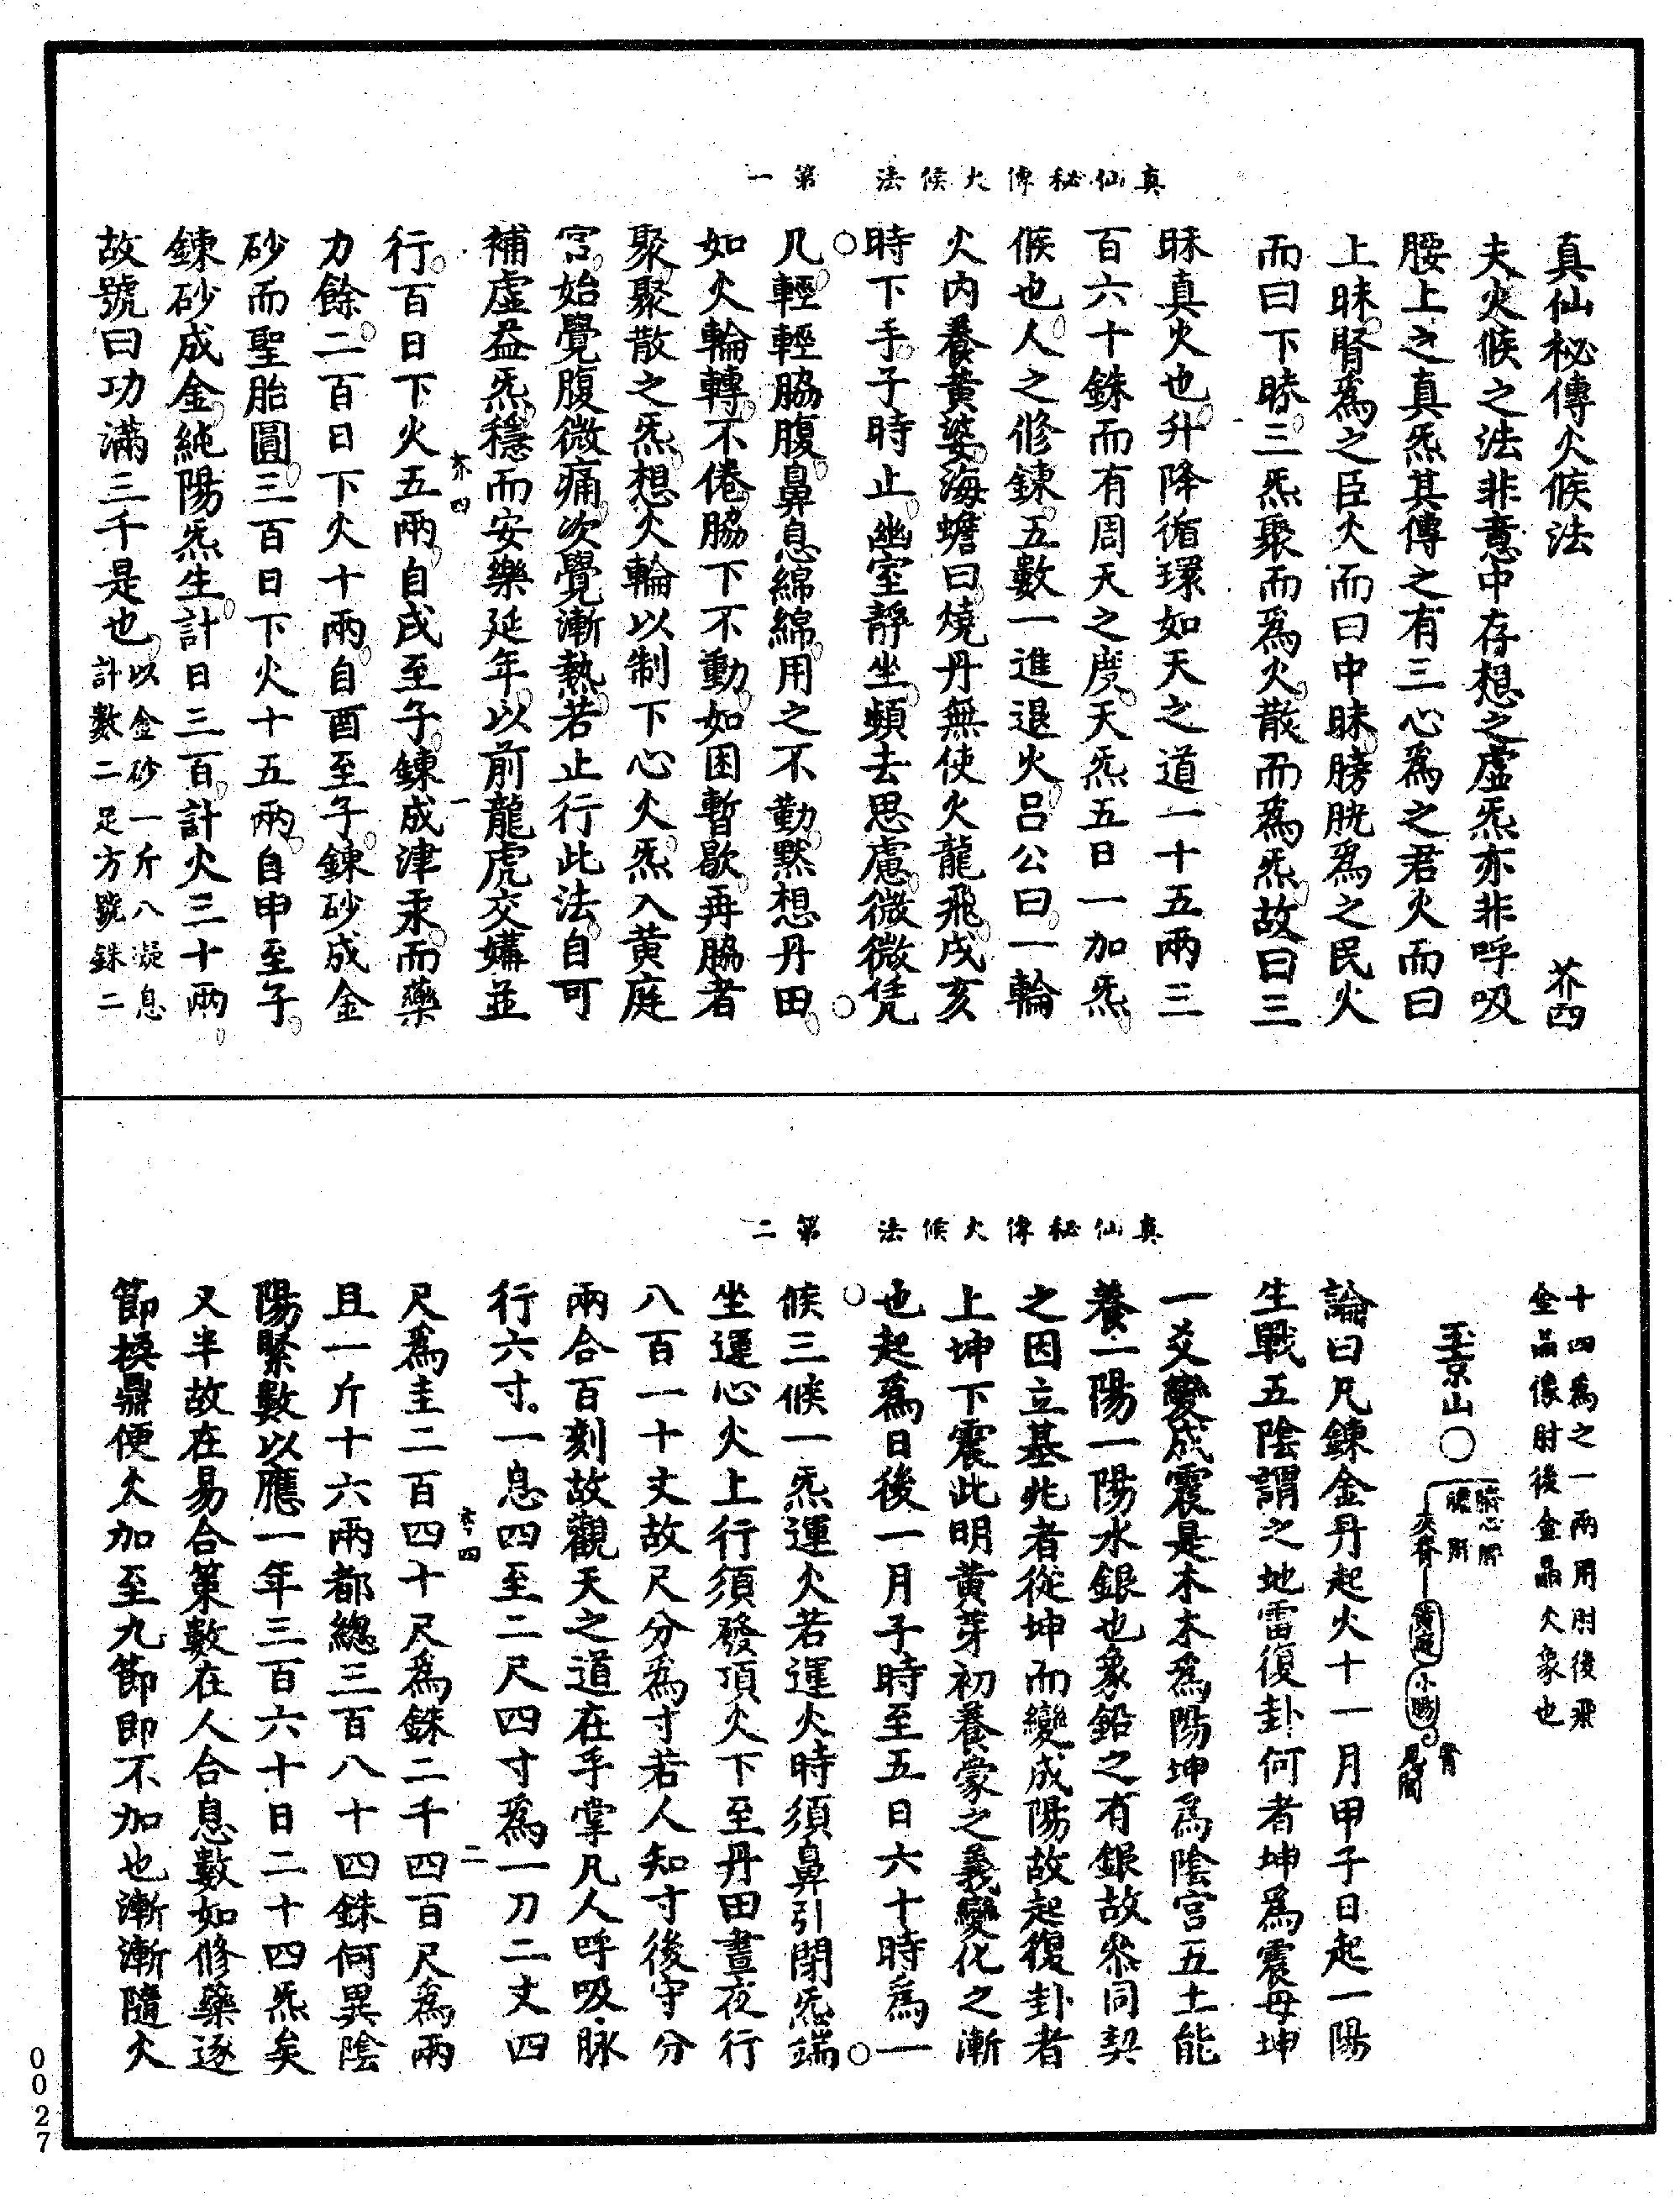 真仙秘傳火候法　第一
真仙秘傳火候法　芥四
夫火候之法非意中存想之虛炁亦非呼吸
腰上之真炁其傳之有三心為之君火而曰
上昧腎為之臣火而曰中昧膀胱為之民火
而曰下昧三炁聚而為火散而為炁故曰三
昧真火也升降循環如天之道一十五兩三
百六十銖而有周天之度天炁五日一加炁
候也人之修鍊五數一進退火呂公曰一輪
火內養黃婆海蟾曰燒丹無使火龍飛戌亥
時下手子時止幽室靜坐頻去思慮微微凭
几輕輕脇腹鼻息綿綿用之不勤默想丹田
如火輪轉不倦脇下不動如困暫歇再脇者
聚聚散之炁想火輪以制下心火炁入黃庭
宮始覺腹微痛次覺漸熱若止行此法自可
補虛益炁穩而安樂延年以前龍虎交媾並
芥四　一
行百日下火五兩自戌至子鍊成津汞而藥
力餘二百日下火十兩自酉至子鍊砂成金
砂而聖胎圓三百日下火十五兩自申至子
鍊砂成金純陽炁生計日三百計火三十兩
故號曰功滿三千是也
以金砂一斤八凝息
計數二足方號銖二
真仙秘傳火候法　第二
十四為之一兩用肘後飛
金晶像肘後金晶火象也
玉京山〇
臍心腎
膽肝
夾脊
黃庭
小腸
胃
尾閭
論曰凡鍊金丹起火十一月甲子日起一陽
生戰五陰謂之地雷復卦何者坤為震母坤
一爻變成震是木木為陽坤為陰宮五土能
養一陽一陽水銀也象鉛之有銀故叅同契
之因立基兆者從坤而變成陽故起復卦者
上坤下震此明黃芽初養蒙之義變化之漸
也起為日後一月子時至五日六十時為一
候三候一炁運火若運火時須鼻引閉炁端
坐運心火上行須發頂火下至丹田晝夜行
八百一十丈故尺分為寸若人知寸後守分
兩合百刻故觀天之道在手掌凡人呼吸脉
行六寸一息四至二尺四寸為一刀二丈四
芥四　二
尺為圭二百四十尺為銖二千四百尺為兩
且一斤十六兩都總三百八十四銖何異陰
陽緊數以應一年三百六十日二十四炁矣
又半故在易合策數在人合息數如修藥逐
節換鼎便火加至九節即不加也漸漸隨火
0027